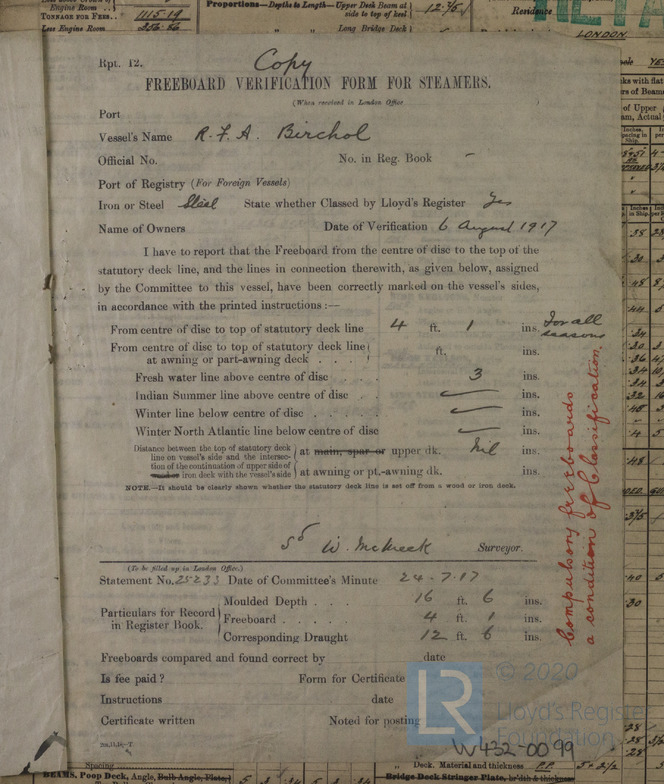 Engine Room
TONNAGE FOR FEES.. 1115.19
Less Engine Room
Proportions—Depths to Length—Upper Deck Beam at side to top of keel
Long Bridge Deck
Residence
LONDON
Rpt. 12.
Copy
FREEBOARD VERIFICATION FORM FOR STEAMERS.
(When received in London Office )
Port
Vessel's Name R.F.A. Birchol
Official No. No. in Reg. Book -
Port of Registry (For Foreign Vessels)
Iron or Steel Steel State whether Classed by Lloyd's Register Yes
Name of Owners Date of Verification 6 August 1917
I have to report that the Freeboard from the centre of disc to the top of the
statutory deck line, and the lines in connection therewith, as given below, assigned
by the Committee to this vessel, have been correctly marked on the vessel's sides,
in accordance with the printed instructions :—
From centre of disc to top of statutory deck line 4 ft. 1 ins. For all seasons
From centre of disc to top of statutory deck line
at awning or part-awning deck . . . ft. ins.
Fresh water line above centre of disc . . . . 3 ins.
Indian Summer line above centre of disc . . ins.
Winter line below centre of disc . . . . . ins.
Winter North Atlantic line below centre of disc ins.
Distance between the top of statutory deck
line on vessel's side and the intersec- at main, spar or upper dk. Nil ins.
tion of the continuation of upper side of
wood or iron deck with the vessel's side at awning or pt.-awning dk. ins.
NOTE.—It should be clearly shown whether the statutory deck line is set off from a wood or iron deck.
Compulsory freeboards
a condition of Classification.
Surveyor.
(To be filled up in London Office.)
Statement No. 25233 Date of Committee's Minute 24-7-17
Moulded Depth . . . . 16 ft. 6 ins.
Particulars for Record
in Register Book. Freeboard . . . . . 4 ft. 1 ins.
Corresponding Draught 12 ft. 6 ins.
Freeboards compared and found correct by date
Is fee paid ? Form for Certificate
Instructions date
Certificate written Noted for posting
© 2020
LR
Lloyd's Register
Foundation
W432-0099
Spacing
Deck. Material and thickness P.P. 5 × 2/2
BEAMS, Poop Deck, Angle, Bulb Angle, Plate,
Bridge Deck Stringer Plate, br'dth & thickness